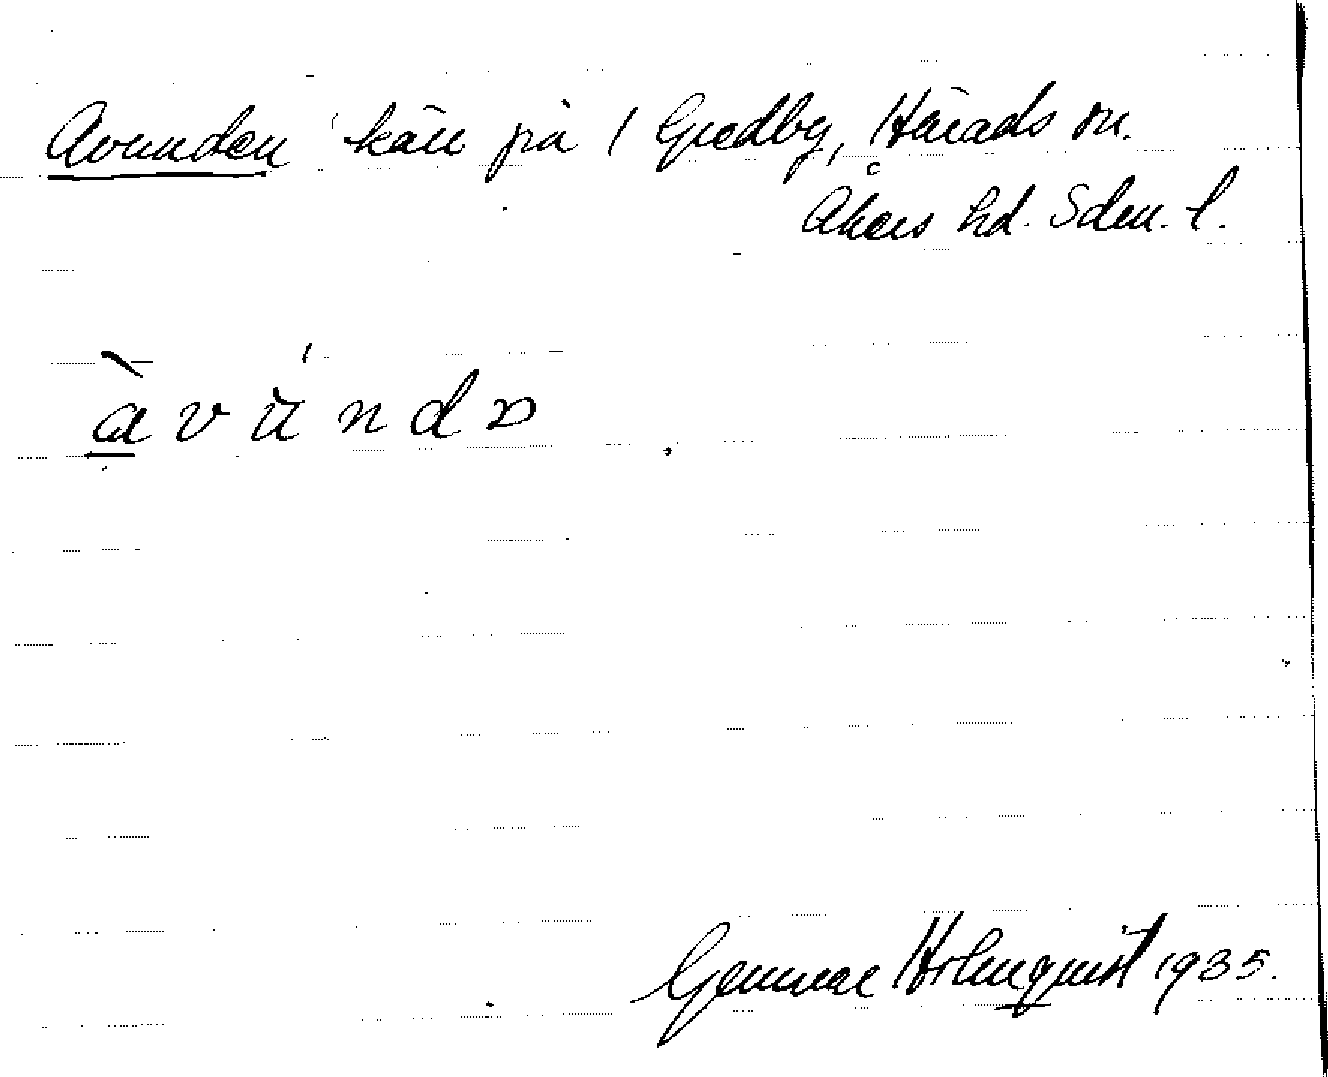 Avunden kärr på 1 Gredby, Härads sn.
Åkers hd. Sdm. l.
àvúndǝ
Gunnar Holmquist 1935.